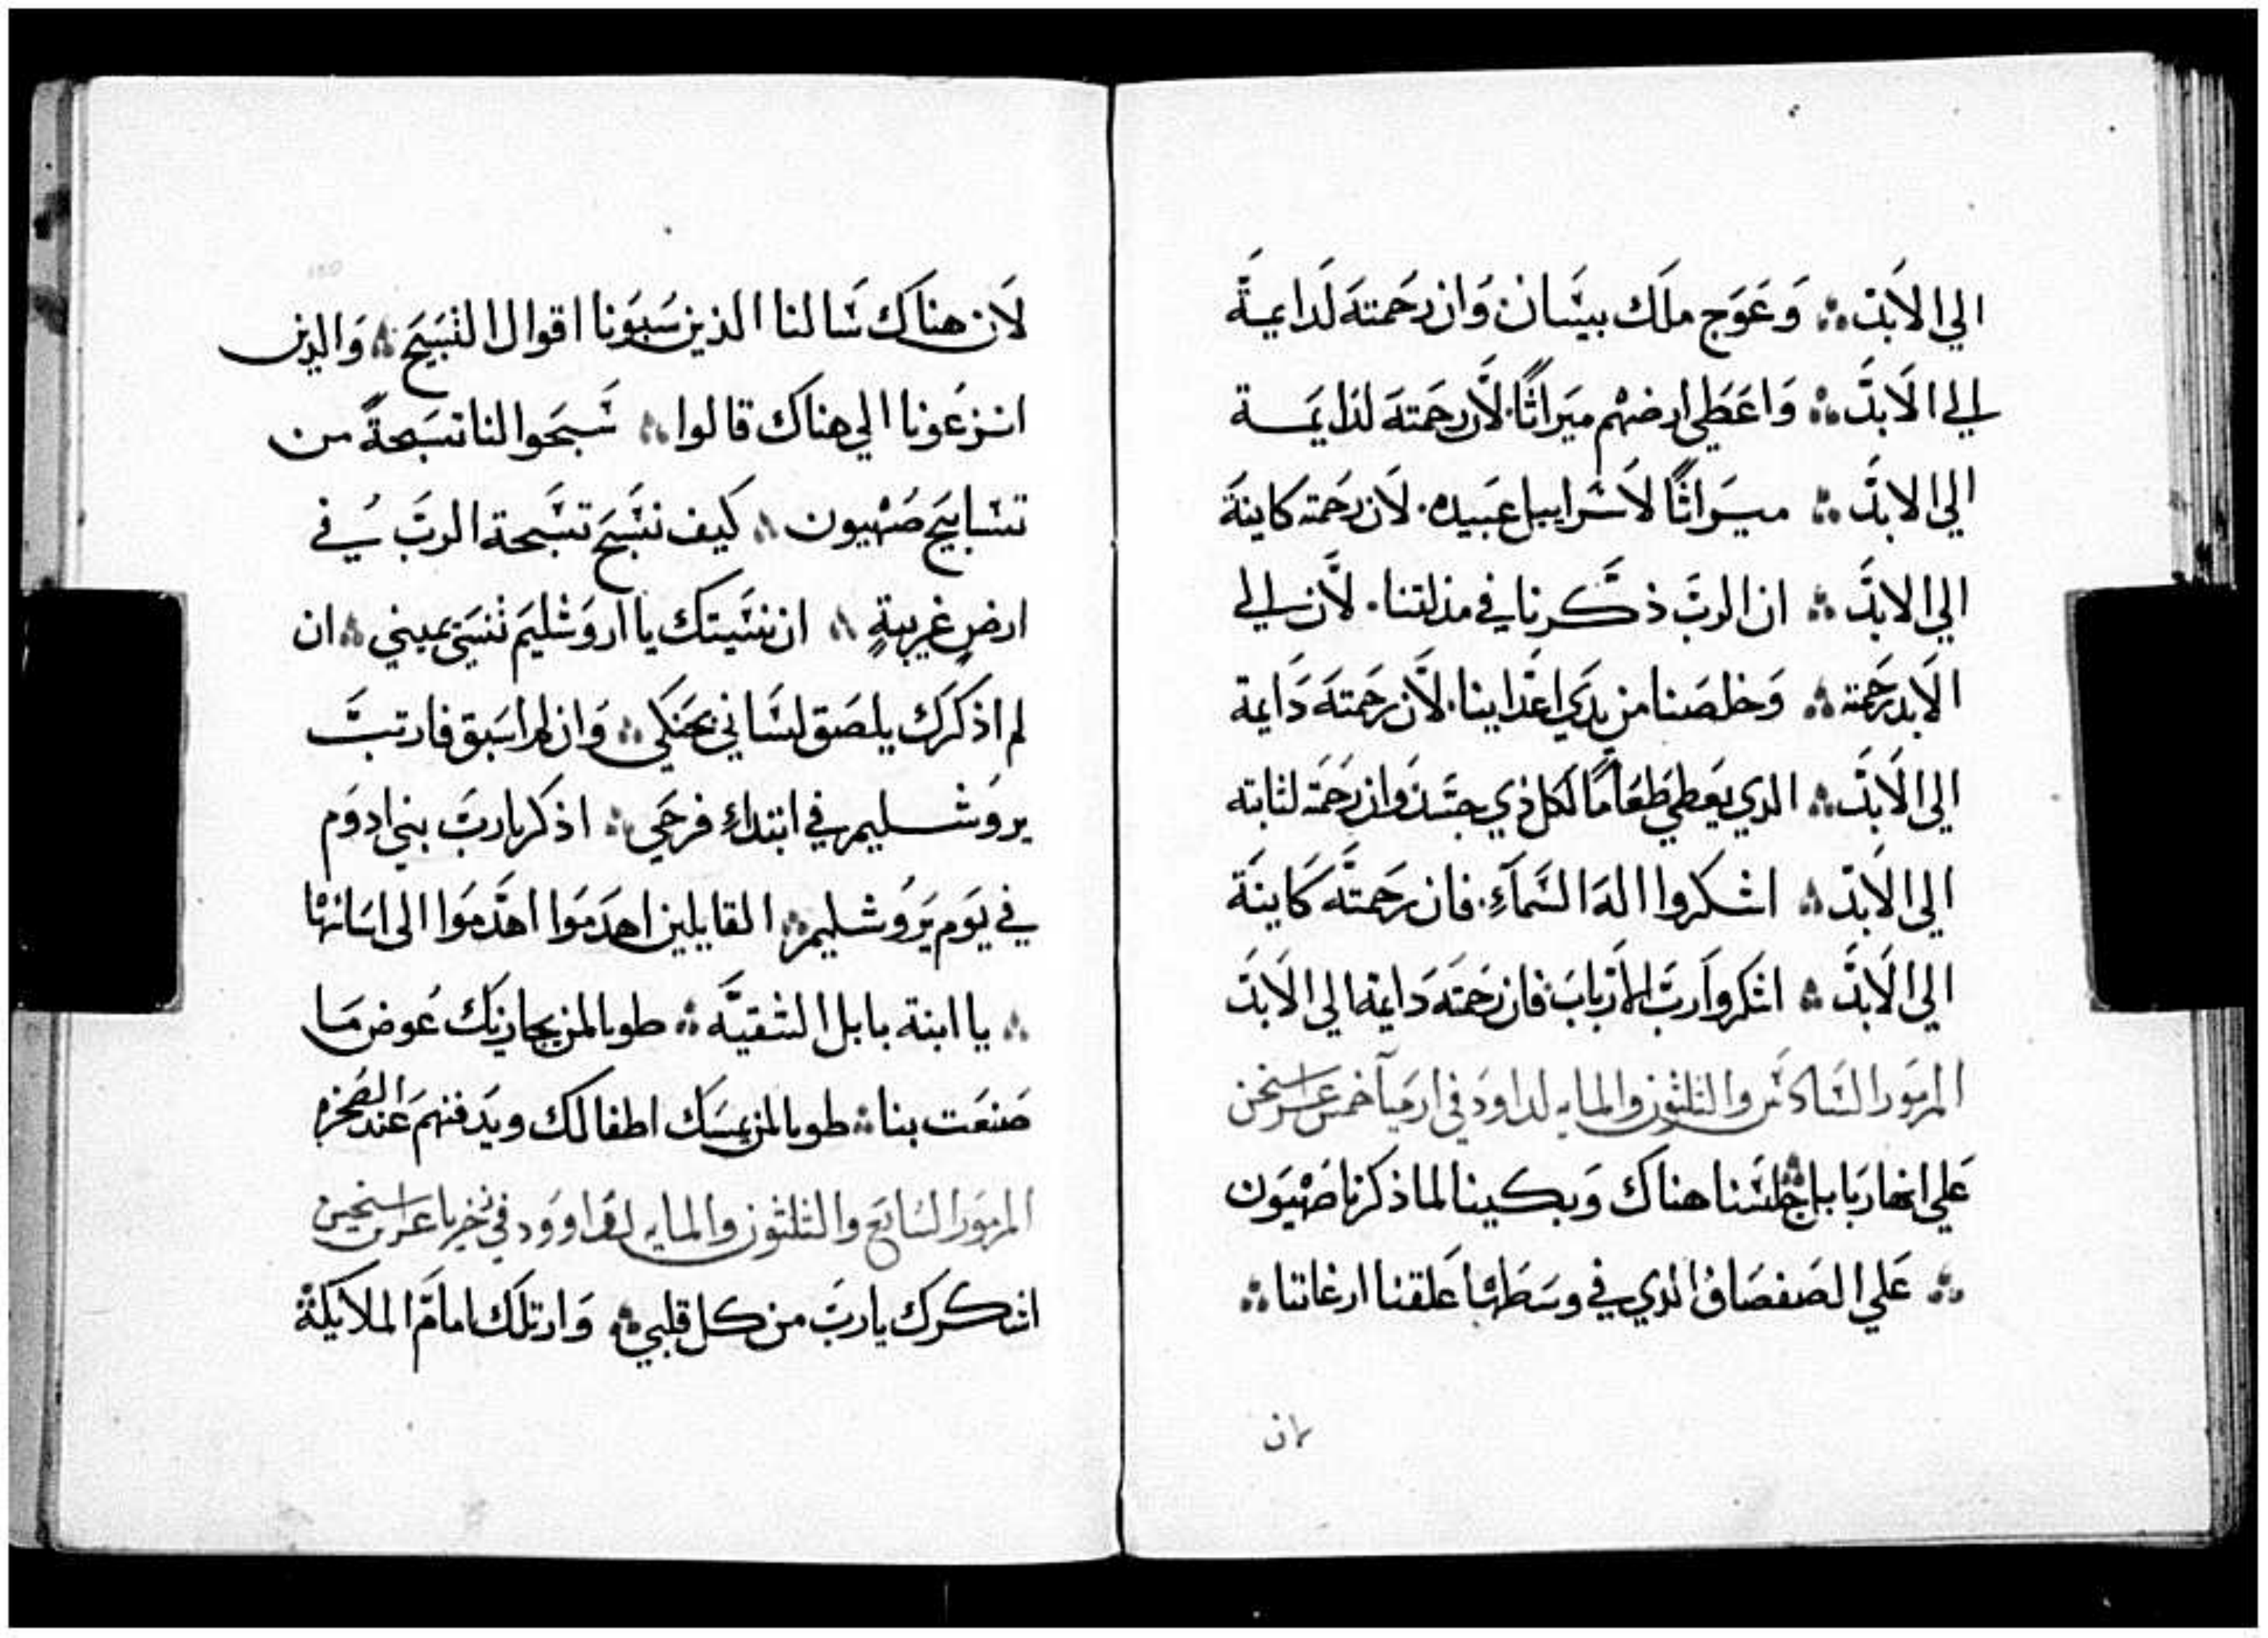 الي الابد ؞ وَعَوَج ملَك بيسَان وَان رَحمته لَدايمةً
الي الابد ؞ وَاعَطي ارضهم ميَراثًا لأن رحمَته لدايمَة
الي الابد ؞ ميَراثًا لاسَراييل عَبيده. لان رَحمته كاينة
الي الابد ؞ ان الربَ ذكَرنا في مذلتنا. لأن الي
الابد رَحمته ؞ وَخلصَنا من يدَي اعَداينا. لأن رحمَته دَايمة
الي الابد ؞ الدي يعَطي طعَامًا لكل ذي جسَد وَان رَحمَته لثابته
الي الابد ؞ اشكروا اله السَمآءِ. فان رحَمته كَاينَة
الي الابد ؞ اشكروا ربَ الارباب فان رحمَته دَايمة الي الابد
المزمَور السَادسَ والثلثون والمايه لداوَد في ارميَا خمس عشر ستخن
عَلي انهار بَابل جلسَنا هناك وَبكينا لما ذكرنا صَهيَون
؞ عَلي الصَفصَاف الدي في وسَطهَا عَلقنا ارغاننا ؞
لان
لَان هناَك سَالنا الذين سَبوَنا اقوال التسَبيح ؞ وَالدين
انزعَونا الي هناك قالوا ؞ سَبحَوا لنا تسَبحةً من
تسَابيَح صَهيون ؞ كيف نسَبح تسَبحة الربَ في
ارضٍ غريبةٍ ؞ ان نسَيتك يا اروَشليمَ تنسَي يميني ؞ ان
لم اذكرَك يلصَق لسَاني بحنَكي ؞ وَان لم اسَبق فارتبَ
يروَشليم في ابتداءِ فرحَي ؞ اذكر يا ربَ بني ادوَم
في يوَم يرَوشليم ؞ القايلين اهدمَوا اهدَموَا الى اسَانهَا
؞ يا ابنة بابل الشقيَة ؞ طوبا لمن يجازيَك عُوض مَا
صَنعَت بنا ؞ طوبا لمن يمسَك اطفالك ويدَفنهمَ عَند الصَخره
المزمَور السَابع والثلثون والمايه لداووَد في زخريا عشر ستخن
اشكرَك ياربَ من كل قلبي ؞ وَارتلَك امامَ الملايكة